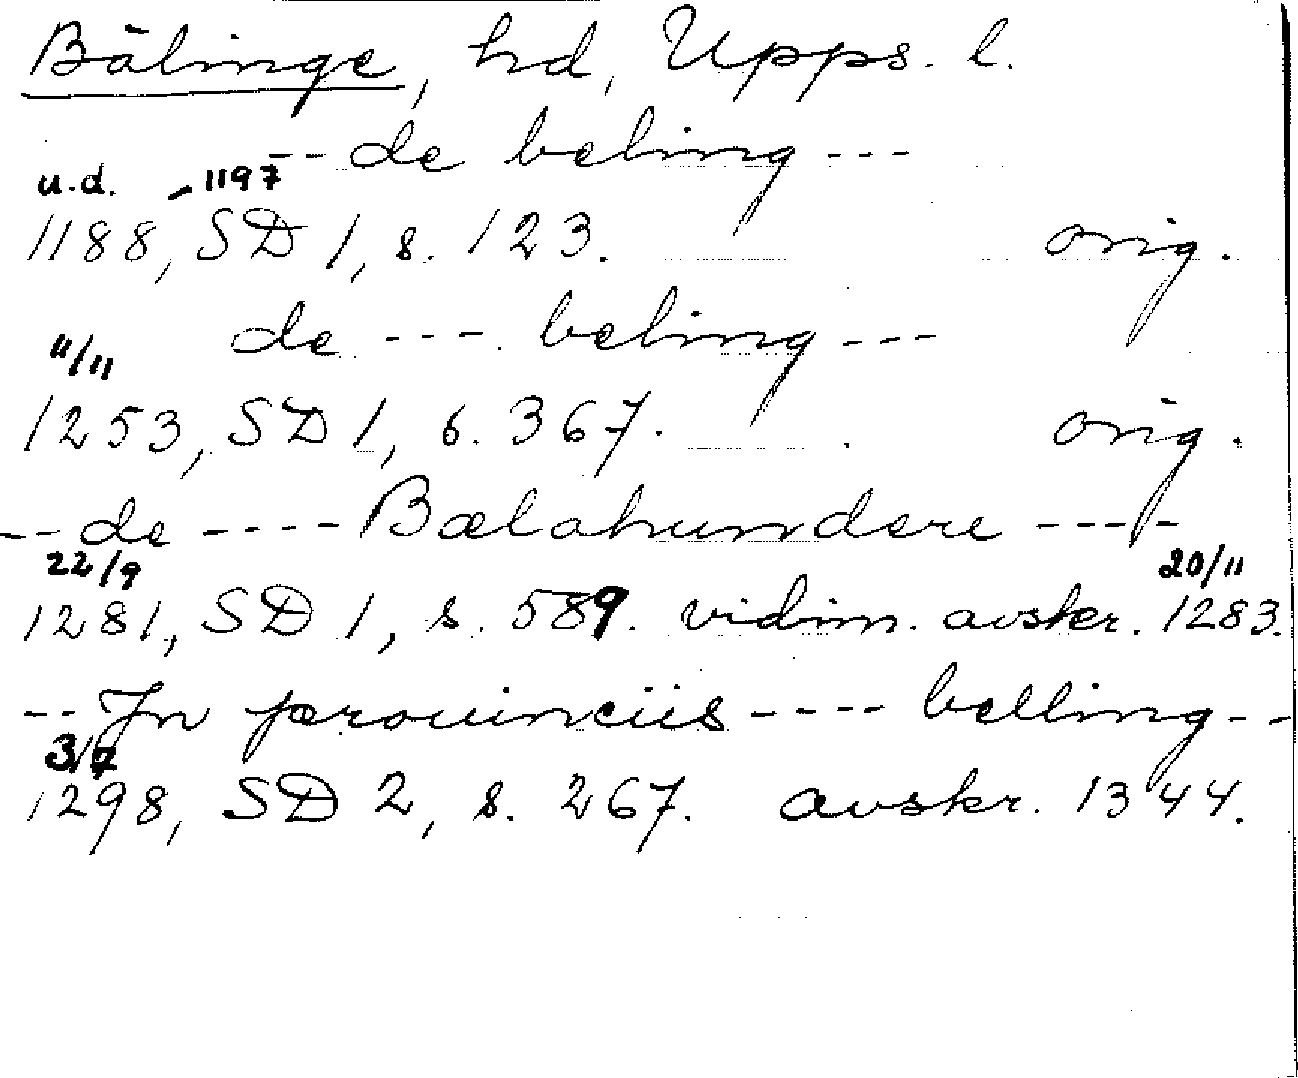 Bälinge, hd, Upps. l.
--- de beling ---
u.d. - 1197
1188, SD 1, s. 123. orig.
de --- beling ---
11/11
1253, SD 1, s. 367. orig.
-- de ---- Bælahundere ----
22/9 20/11
1281, SD 1, s. 589. vidim. avskr. 1283.
-- Jn prouinciis ---- belling --
3/7
1298, SD 2, s. 267. avskr. 1344.